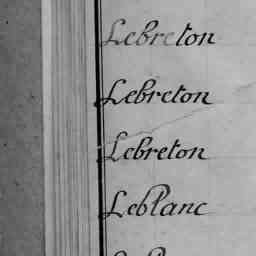 Lebreton
Lebreton
Lebreton
Leblanc